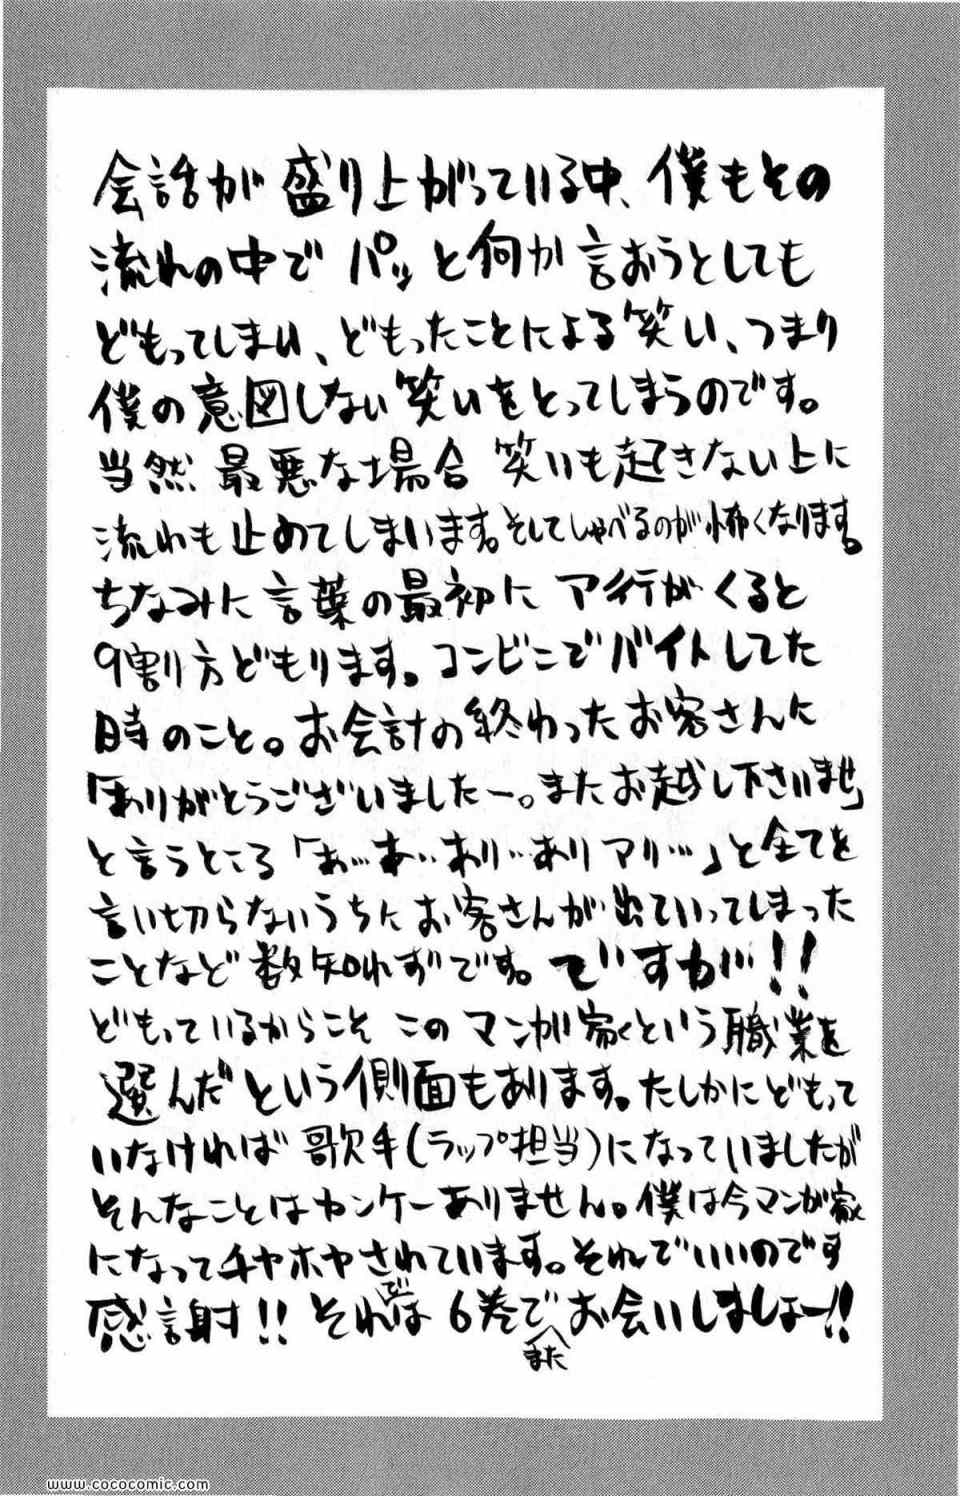 会話が盛り上がっている中、僕もその
流れの中でパッと何か言おうとしても
どもってしまい、どもったことによる笑い、つまり
僕の意図しない笑いをとってしまうのです。
当然最悪な場合笑いも起きない上に
流れも止めてしまいます。そしてしゃべるのが怖くなります。
ちなみに言葉の最初にア行がくると
9割方どもります。コンビニでバイトしてた
時のこと。お会計の終わったお客さんに
「ありがとうございましたー。またお越し下さいませ」
と言うところ「あ…あ…あり…ありマリ…」と全てを
言い切らないうちにお客さんが出ていってしまった
ことなど数知れずです。ですが!!
どもっているからこそこのマンガ家くという職業を
選んだという側面もあります。たしかにどもって
いなければ歌手(ラップ担当)になっていましたが
そんなことはカンケーありません。僕は今マンガ家
になってチヤホヤされています。それでいいのです
感謝!!それでは6巻でまたお会いしましょー!!
www.cococomic.com